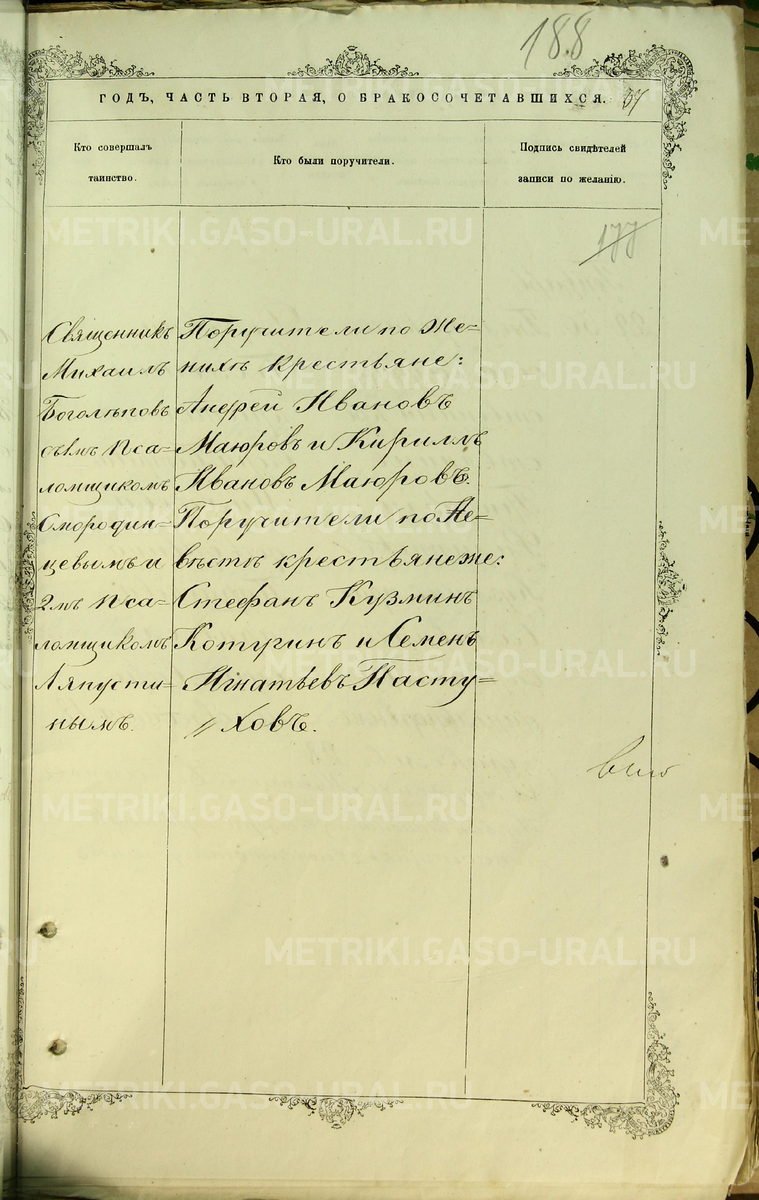 188
ГОДЪ, ЧАСТЬ ВТОРАЯ, О БРАКОСОЧЕТАВШИХСЯ. 37
Кто совершалъ
таинство.
Кто были поручители.
Подпись свидѣтелей
записи по желанію.
177
Священникъ
Михаилъ
Боголѣповъ
съ 1мъ Пса-
ломщикомъ
Смородин-
цевымъ и
2мъ Пса-
ломщикомъ
Ляпусти-
нымъ.
Поручители по Же-
нихѣ крестьяне:
Андрей Ивановъ
Маюровъ и Кириллъ
Ивановъ Маюровъ.
Поручители по Не-
вѣстѣ крестьяне же:
Стефанъ Кузминъ
Котугинъ и Семенъ
Игнатьевъ Пасту-
// ховъ.
METRIKI.GASO-URAL.RU